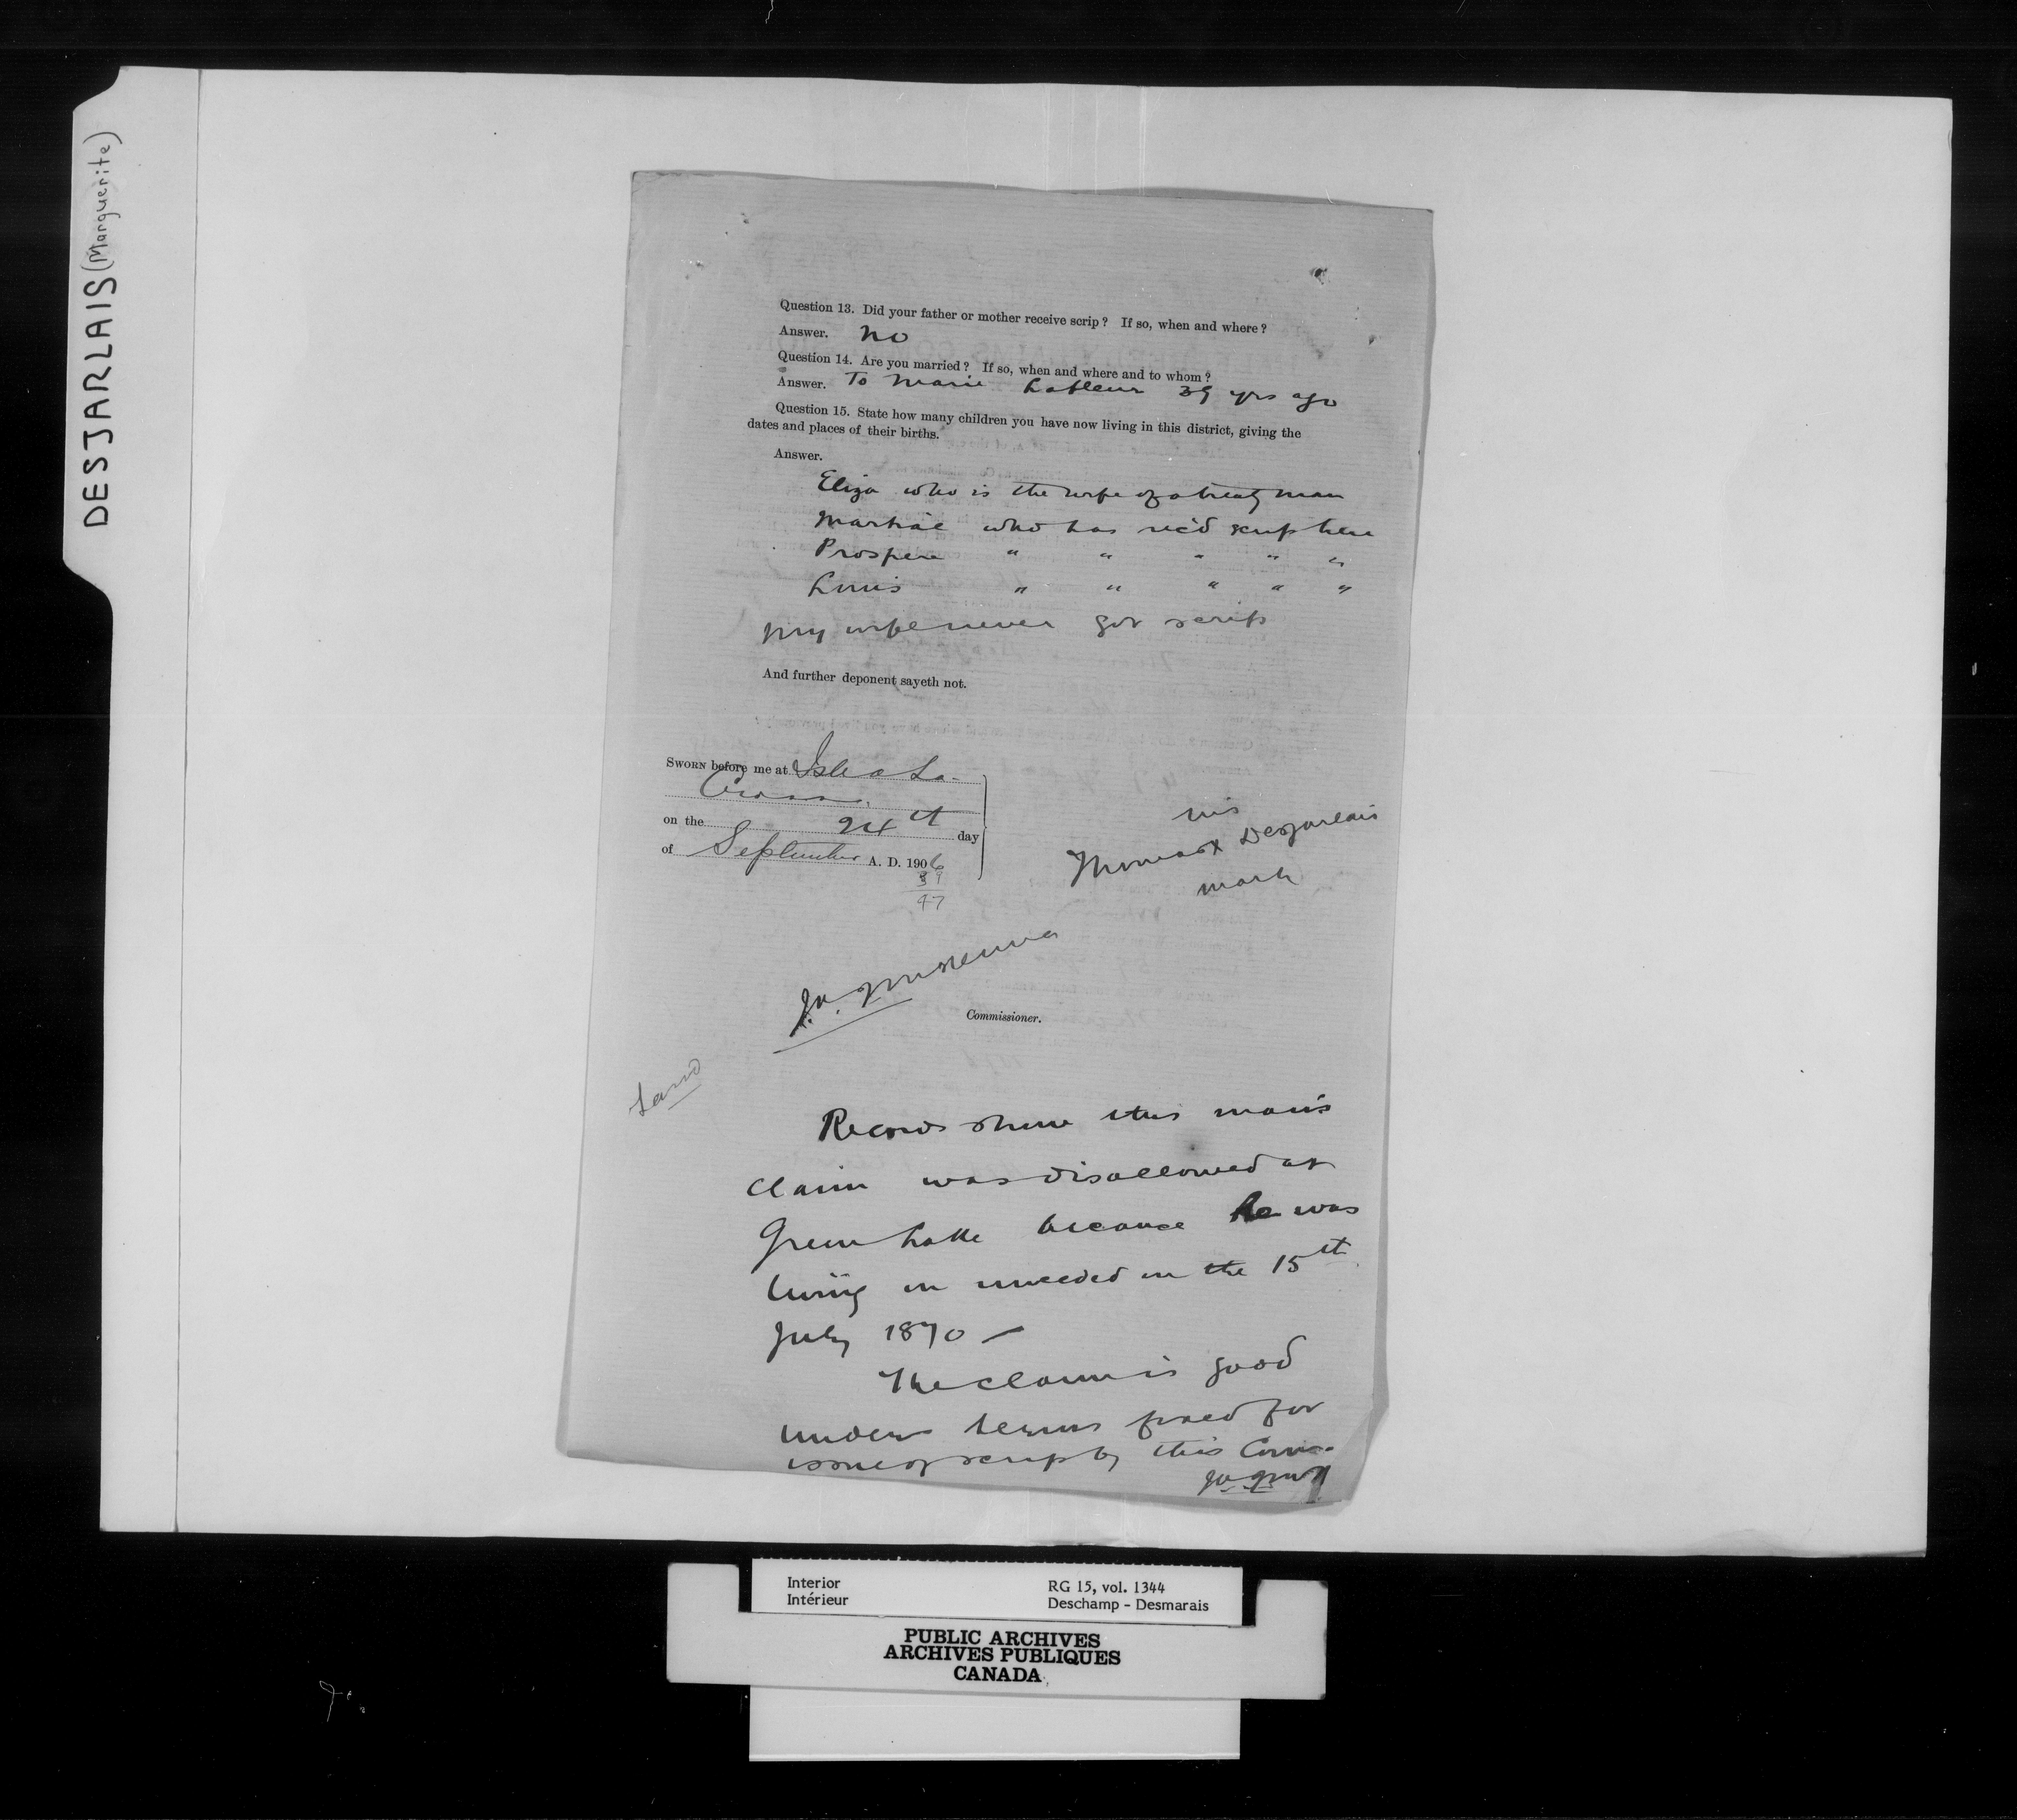 DESJARLAIS (Marguerite)
Question 13. Did your father or mother receive scrip? If so, when and where?
Answer. no
Question 14. Are you married? If so, when and where and to whom?
Answer. To Marie Lafleur 39 yrs ago
Question 15. State how many children you have now living in this district, giving the
dates and places of their births.
Answer.
Eliza who is the wife of a treaty man
Martial who has rec'd scrip here
Prospere " " " " "
Louis " " " " "
My wife never got scrip
And further deponent sayeth not.
SWORN before me at Isle a La-
Crosse
on the 24th day
of September A. D. 1906
39
47
his
Thomas X Desjarlais
mark
J.A. McKenna
Commissioner.
Land
Records show this man's
claim was disallowed at
Green Lake because he was
living in unceded on the 15th
July 1870 —
The claim is good
under terms fixed for
issue of scrip by this Com-
Interior
Intérieur
RG 15, vol. 1344
Deschamp - Desmarais
PUBLIC ARCHIVES
ARCHIVES PUBLIQUES
CANADA